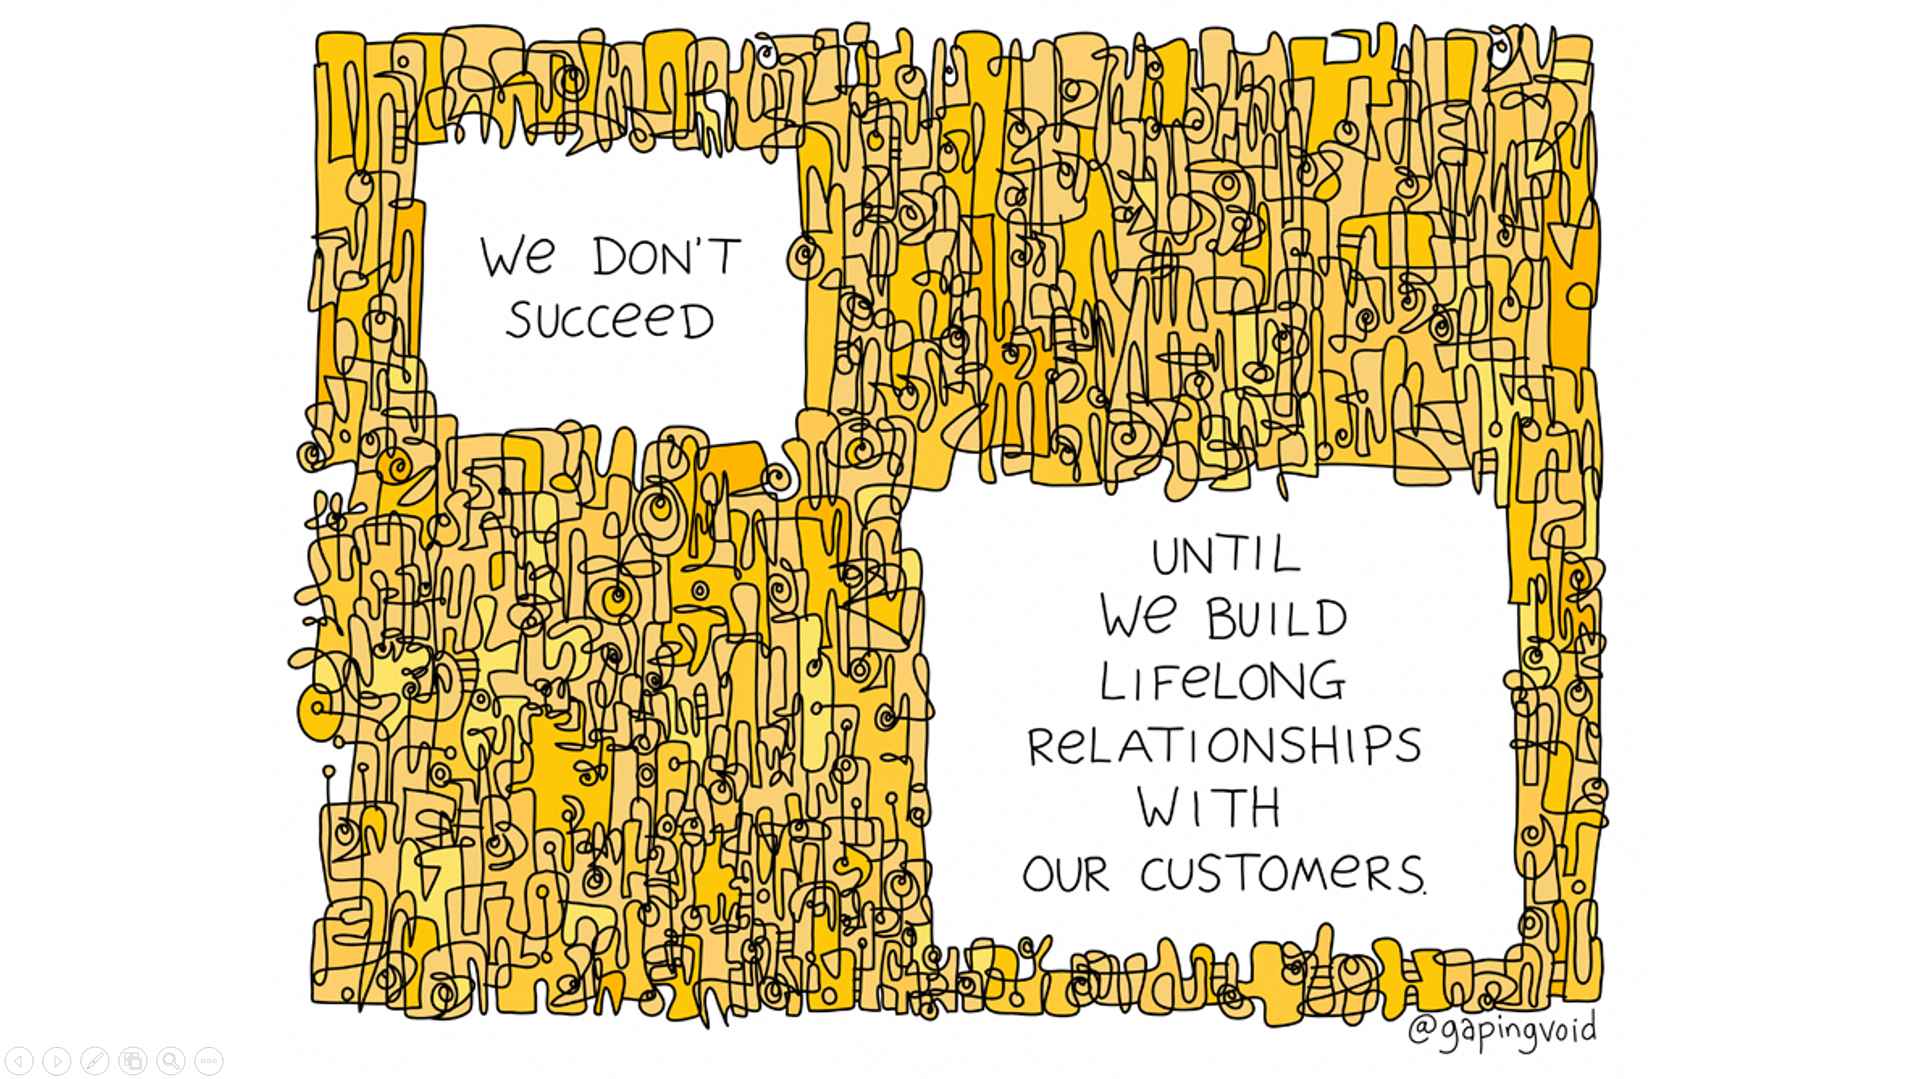 We DON'T
SUCCeeD
UNTIL
We BUILD
LIFeLONG
ReLATIONSHIPS
WITH
OUR CUSTOMeRS.
@gapingvoid